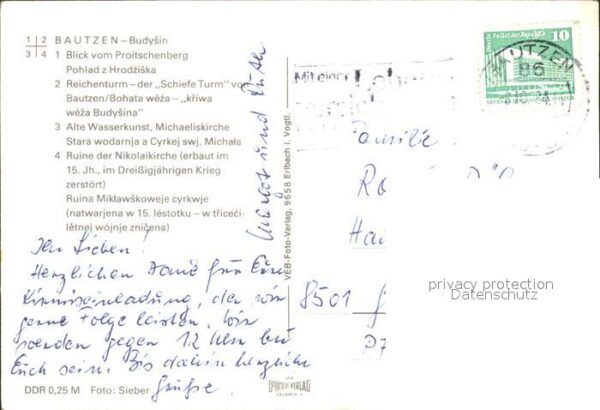 1 | 2 BAUTZEN – Budyšin
3 | 4 1 Blick vom Proitschenberg
Pohlad z Hrodźiška
2 Reichenturm – der „Schiefe Turm“ vo
Bautzen/Bohata wěža – „křiwa
wěža Budyšina“
3 Alte Wasserkunst, Michaeliskirche
Stara wodarnja a Cyrkej swj. Michała
4 Ruine der Nikolaikirche (erbaut im
15. Jh., im Dreißigjährigen Krieg
zerstört)
Ruina Mikławškoweje cyrkwje
(natwarjena w 15. lěstotku – w třiceći-
lětnej wójnje zničena)
Ihr Lieben!
Herzlichen Dank für Eure
Kirmeseinladung, der wir
gerne Folge leisten. Wir
werden gegen 12 Uhr bei
Euch sein. Bis dahin herzliche
Grüße
Margot und
DDR 0,25 M Foto: Sieber
VEB-Foto-Verlag, 9658 Erlbach i. Vogtl.
FOTO-VERLAG
ERLBACH
Mit einer
Palast der Republik
10
BAUTZEN
86
Familie
8501
privacy protection
Datenschutz